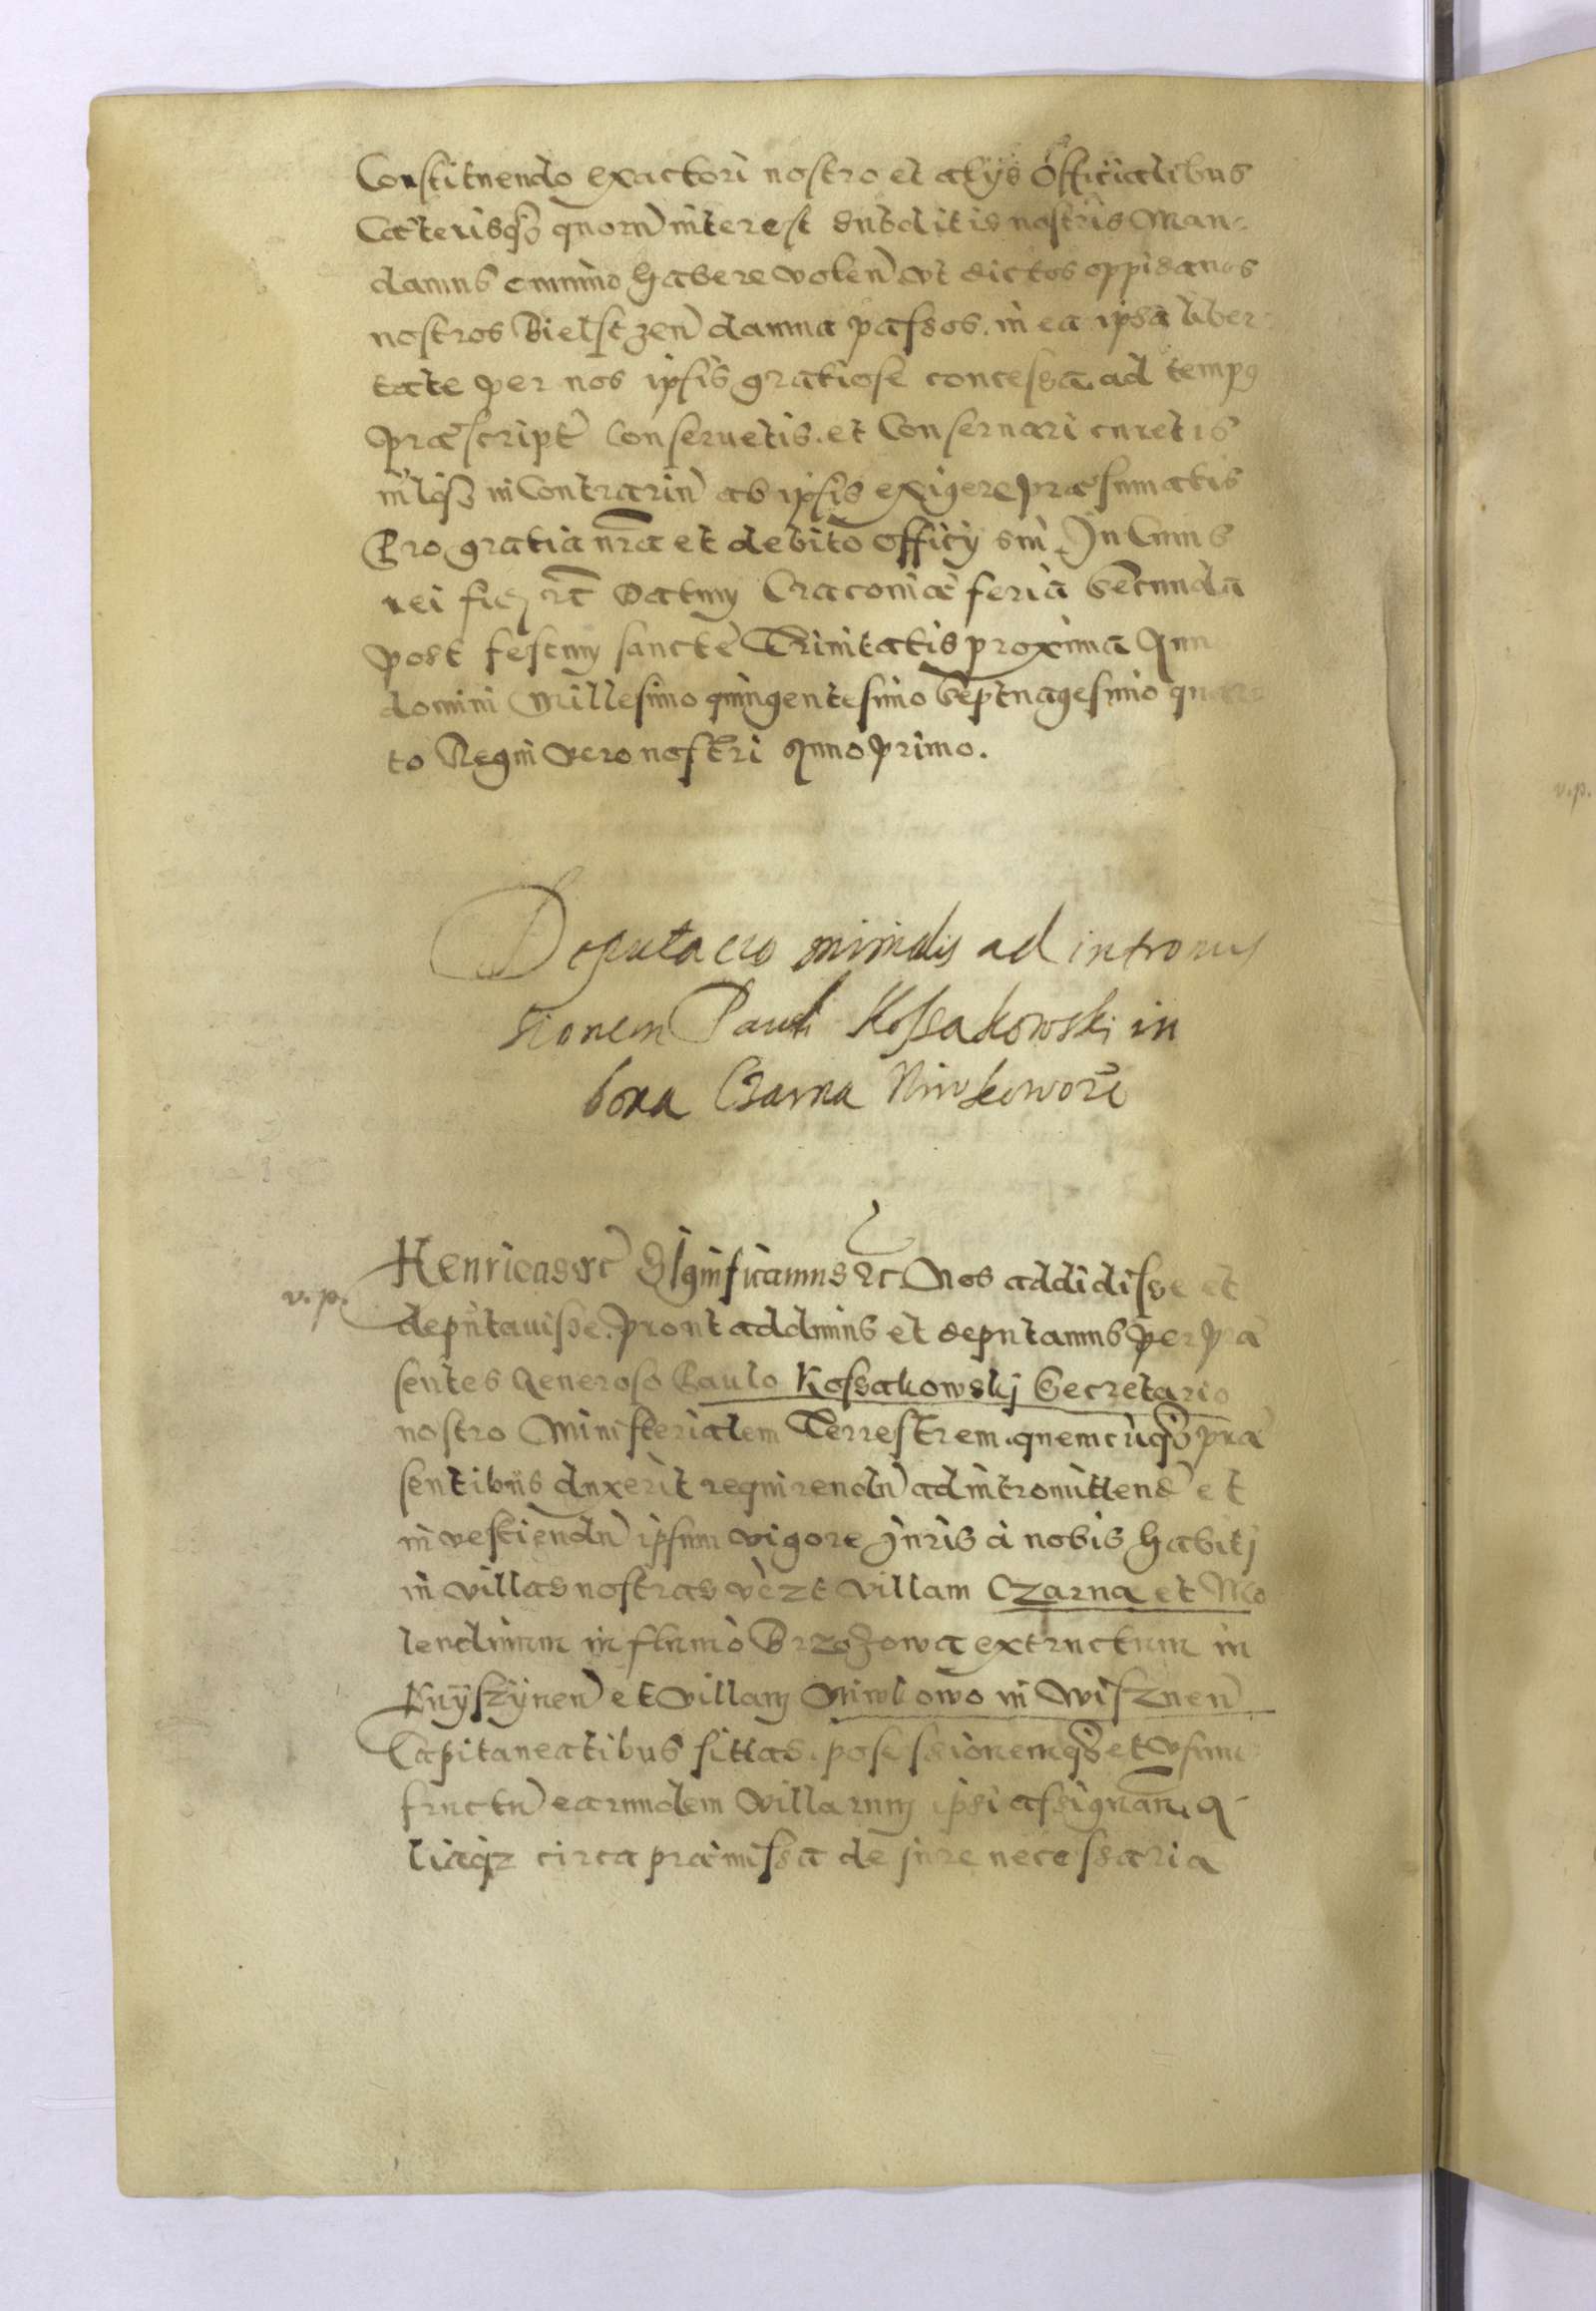 Constituendo exactori nostro et alijs officialibus
Cæterisq3 quorū interest subditis nostris Man-
damus omnino habere volen̄ vt dictos oppidanos
nostros Bielsczen̄ damna passos. in ea ipsa liber-
tate per nos ipsis gratiose concessa, ad tempq
præscript̄ conseruetis. et Conseruari curetis
nilq3 in Contrariū ab ipsis exigere præsumatis
Pro gratia nr̄a et debito officij sui, In Cuius
rei fid rc̄ Datum Cracouiæ feria Secunda
post festum sancte Trinitatis proxima Ann
domini Millesimo quingentesimo Septuagesimo quar-
to Regni vero nostri Anno primo.
Deputacio minialis ad intromis
sionem Pauli Kossakowski in
bona Czarna Niwkowo rc̄
Henricus rc̄ Significamus rc Nos addidisse et
v. p.
deputauisse. prout addimus et deputamus per præ
sentes Generoso Paulo Kossakowskj Secretario
nostro Ministerialem Terrestrem. quemcūq3 præ
sentibus duxerit requirendū ad intromittend̄ et
in vestiendū ipsum vigore Juris à nobis habitj
in villas nostras vèzt villam Czarna et Mo
lendinum in fluuio Brzozowa extructum in
Knyszÿnen̄ et villam Niwkowo in Wisznen̄
Capitaneatibus sittas. posessionemq3 et vsum
fructū earundem villarum ipsi assignan̄. a-
liaq3 circa præmissa de jure necessaria